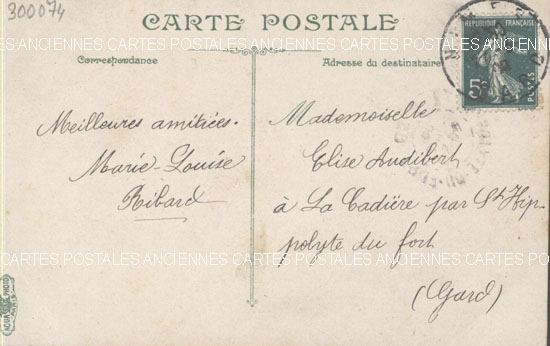 300074
CARTE POSTALE
CARTES POSTALES ANCIENNES CARTES POSTALES ANCIENNES CARTES POSTALES ANCIENNES
Correspondance
Adresse du destinataire
RÉPUBLIQUE FRANÇAISE
5c
POSTES
Meilleures amitiées.
Marie-Louise
Ribard
Mademoiselle
Elise Audibert
à La Cadière par St Hip-
polyte du fort
(Gard)
CARTES POSTALES ANCIENNES CARTES POSTALES ANCIENNES CARTES POSTALES ANCIENNES
AQUA PHOTO
PARIS